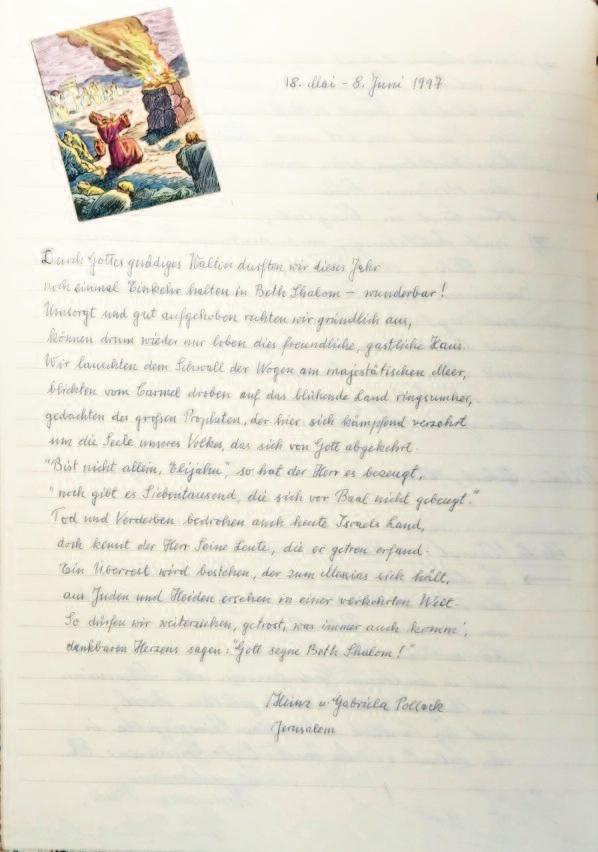 18. Mai - 8. Juni 1997
Durch Gottes gnädiges Walten durften wir dieses Jahr
noch einmal Einkehr halten in Beth Shalom – wunderbar!
Umsorgt und gut aufgehoben ruhten wir gründlich aus,
können drum wieder nur loben dies freundliche, gastliche Haus.
Wir lauschten dem Schwall der Wogen am majestätischen Meer,
blickten vom Carmel droben auf das blühende Land ringsumher,
gedachten des großen Propheten, der hier sich kämpfend verzehrt
um die Seele unseres Volkes, das sich von Gott abgekehrt.
"Bist nicht allein, Elijahu", so hat der Herr es bezeugt,
"noch gibt es Siebentausend, die sich vor Baal nicht gebeugt."
Tod und Verderben bedrohen auch heute Israels Land,
doch kennt der Herr Seine Leute, die er getreu erfand.
Ein Überrest wird bestehen, der zum Messias sich hält,
aus Juden und Heiden ersehen in einer verkehrten Welt.
So dürfen wir weiterziehen, getrost, was immer auch komm',
dankbaren Herzens sagen: "Gott segne Beth Shalom!"
Heinz u. Gabriela Pollack
Jerusalem